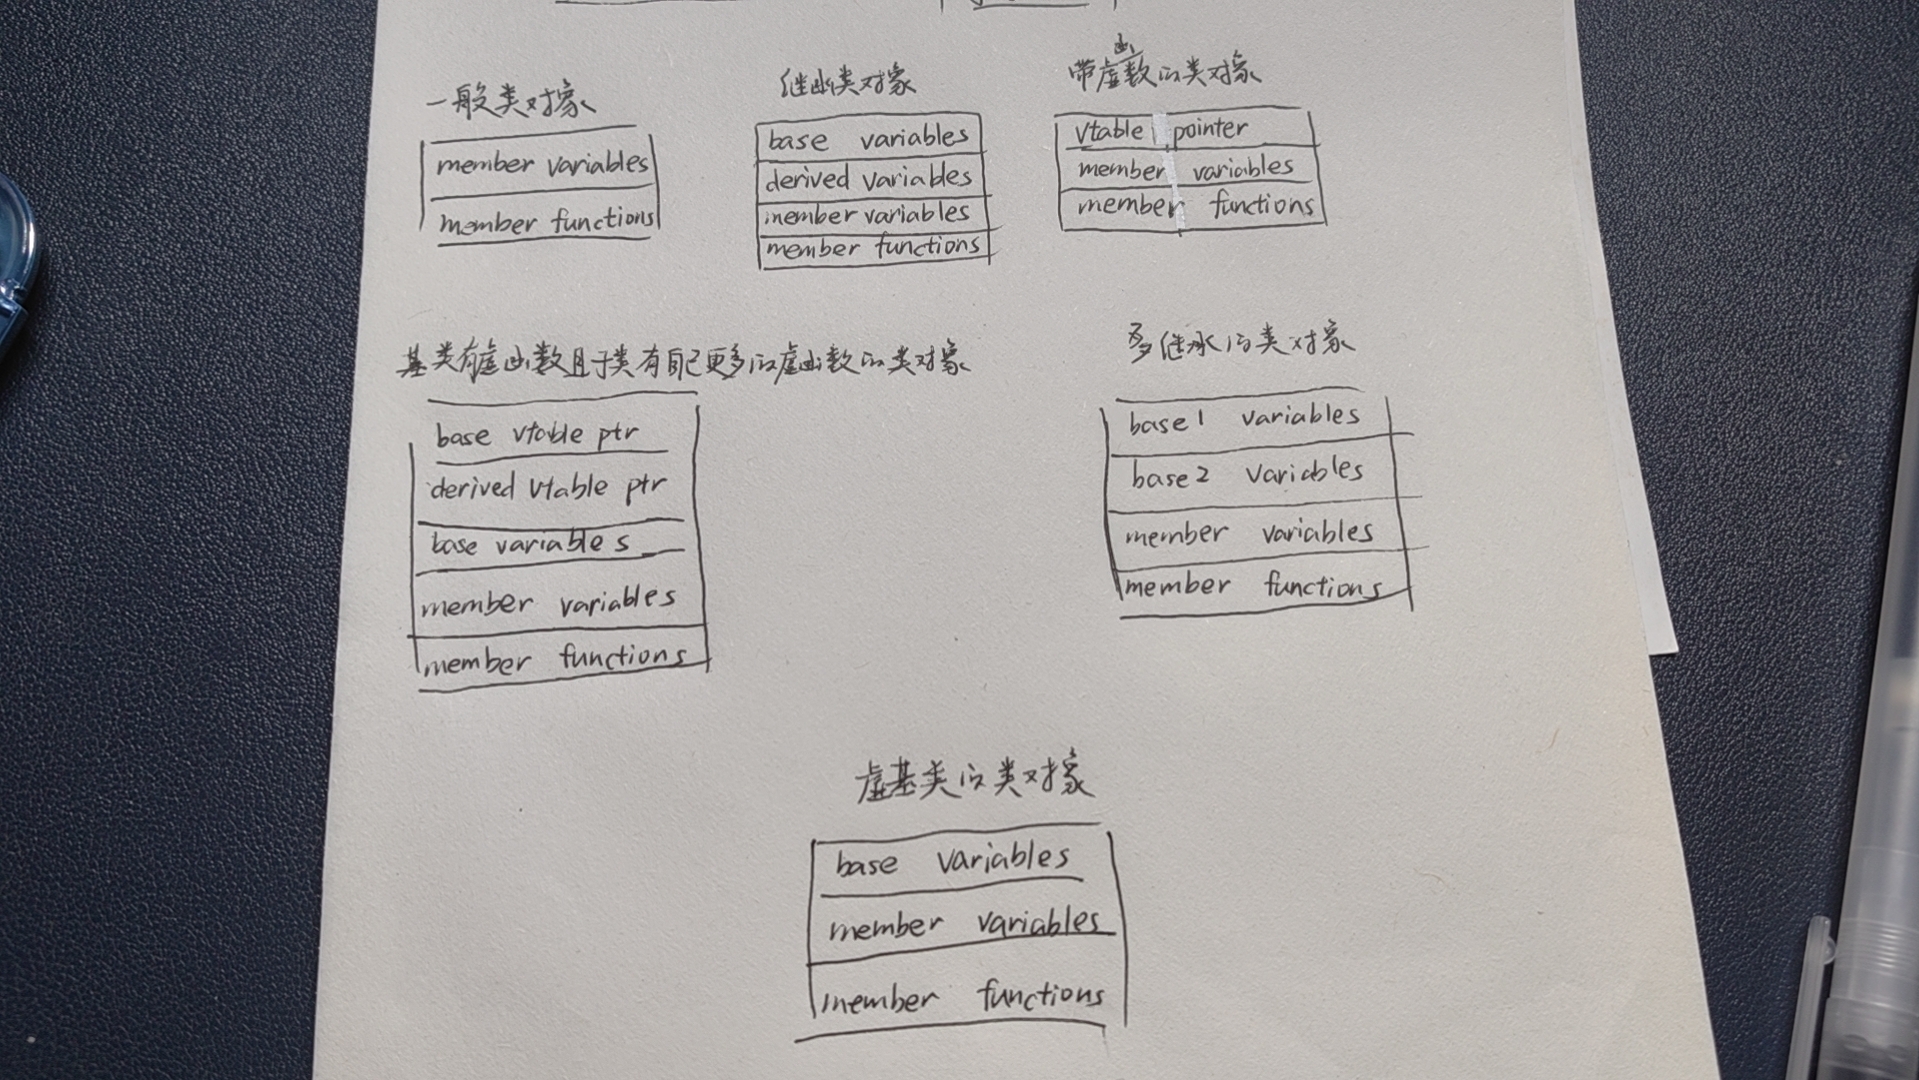 一般类对象
member variables
member functions
继承类对象
base variables
derived variables
member variables
member functions
带虚函数的类对象
vtable pointer
member variables
member functions
基类有虚函数且子类有自己更多的虚函数的类对象
base vtable ptr
derived vtable ptr
base variables
member variables
member functions
多继承的类对象
base1 variables
base2 variables
member variables
member functions
虚基类的类对象
base variables
member variables
member functions